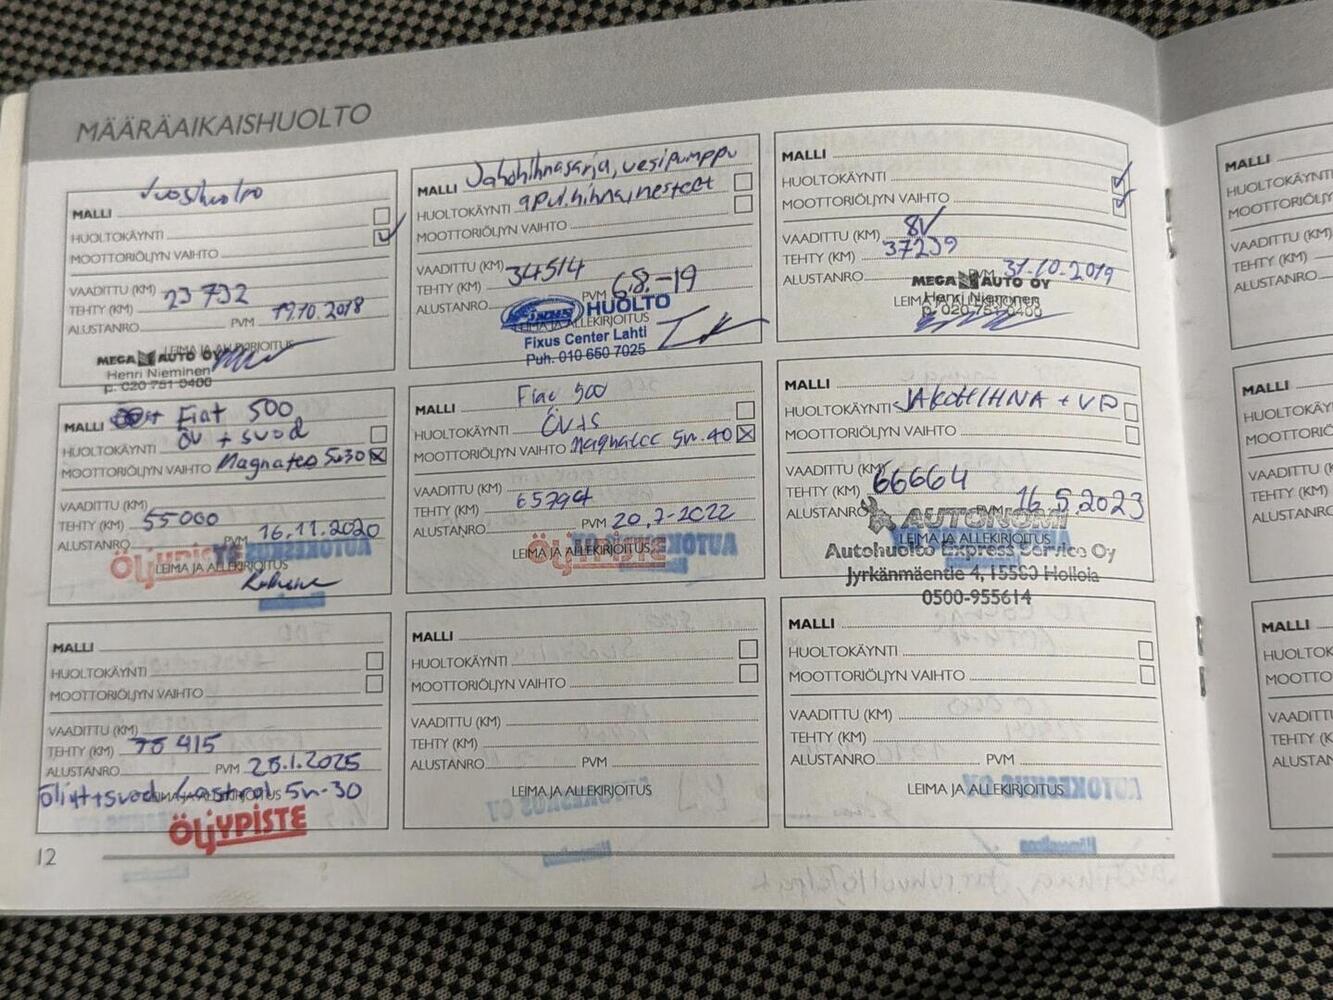 MÄÄRÄAIKAISHUOLTO
Vuosihuolto
MALLI
HUOLTOKÄYNTI
MOOTTORIÖLJYN VAIHTO
VAADITTU (KM)
TEHTY (KM) 23 732
ALUSTANRO PVM 19.10.2018
LEIMA JA ALLEKIRJOITUS
MEGA AUTO OY
Henri Nieminen
p. 020 751 0400
MALLI Jakohihnasarja, vesipumppu
HUOLTOKÄYNTI apul.hihna, nesteet
MOOTTORIÖLJYN VAIHTO
VAADITTU (KM)
TEHTY (KM) 34514
ALUSTANRO PVM 6.8.-19
LEIMA JA ALLEKIRJOITUS
FIXUS HUOLTO
Fixus Center Lahti
Puh. 010 650 7025
MALLI
HUOLTOKÄYNTI
MOOTTORIÖLJYN VAIHTO
VAADITTU (KM) 8V
TEHTY (KM) 37239
ALUSTANRO PVM 31.10.2019
MEGA AUTO OY
LEIMA JA ALLEKIRJOITUS
Henri Nieminen
p. 020 751 0400
MALLI Fiat 500
HUOLTOKÄYNTI öv + suod
MOOTTORIÖLJYN VAIHTO Magnatec 5w30
VAADITTU (KM)
TEHTY (KM) 55000
ALUSTANRO PVM 16.11.2020
LEIMA JA ALLEKIRJOITUS
ÖLJYPISTE
MALLI Fiat 500
HUOLTOKÄYNTI ÖV+S
MOOTTORIÖLJYN VAIHTO Magnatec 5w-40
VAADITTU (KM)
TEHTY (KM) 65794
ALUSTANRO PVM 20.7-2022
LEIMA JA ALLEKIRJOITUS
ÖLJYPISTE
MALLI
HUOLTOKÄYNTI JAKOHIHNA + VP
MOOTTORIÖLJYN VAIHTO
VAADITTU (KM)
TEHTY (KM) 66664
ALUSTANRO PVM 16.5.2023
AUTONOMI
LEIMA JA ALLEKIRJOITUS
Autohuolto Express Service Oy
Jyrkänmäentie 4, 15560 Hollola
0500-955614
MALLI
HUOLTOKÄYNTI
MOOTTORIÖLJYN VAIHTO
VAADITTU (KM)
TEHTY (KM) 75 415
ALUSTANRO PVM 28.1.2025
LEIMA JA ALLEKIRJOITUS
Öljyt+suod Castrol 5w-30
ÖLJYPISTE
MALLI
HUOLTOKÄYNTI
MOOTTORIÖLJYN VAIHTO
VAADITTU (KM)
TEHTY (KM)
ALUSTANRO PVM
LEIMA JA ALLEKIRJOITUS
MALLI
HUOLTOKÄYNTI
MOOTTORIÖLJYN VAIHTO
VAADITTU (KM)
TEHTY (KM)
ALUSTANRO PVM
LEIMA JA ALLEKIRJOITUS
12
MALLI
VAADITTU
TEHTY (KM)
MALLI
VAADITTU
TEHTY (KM)
MALLI